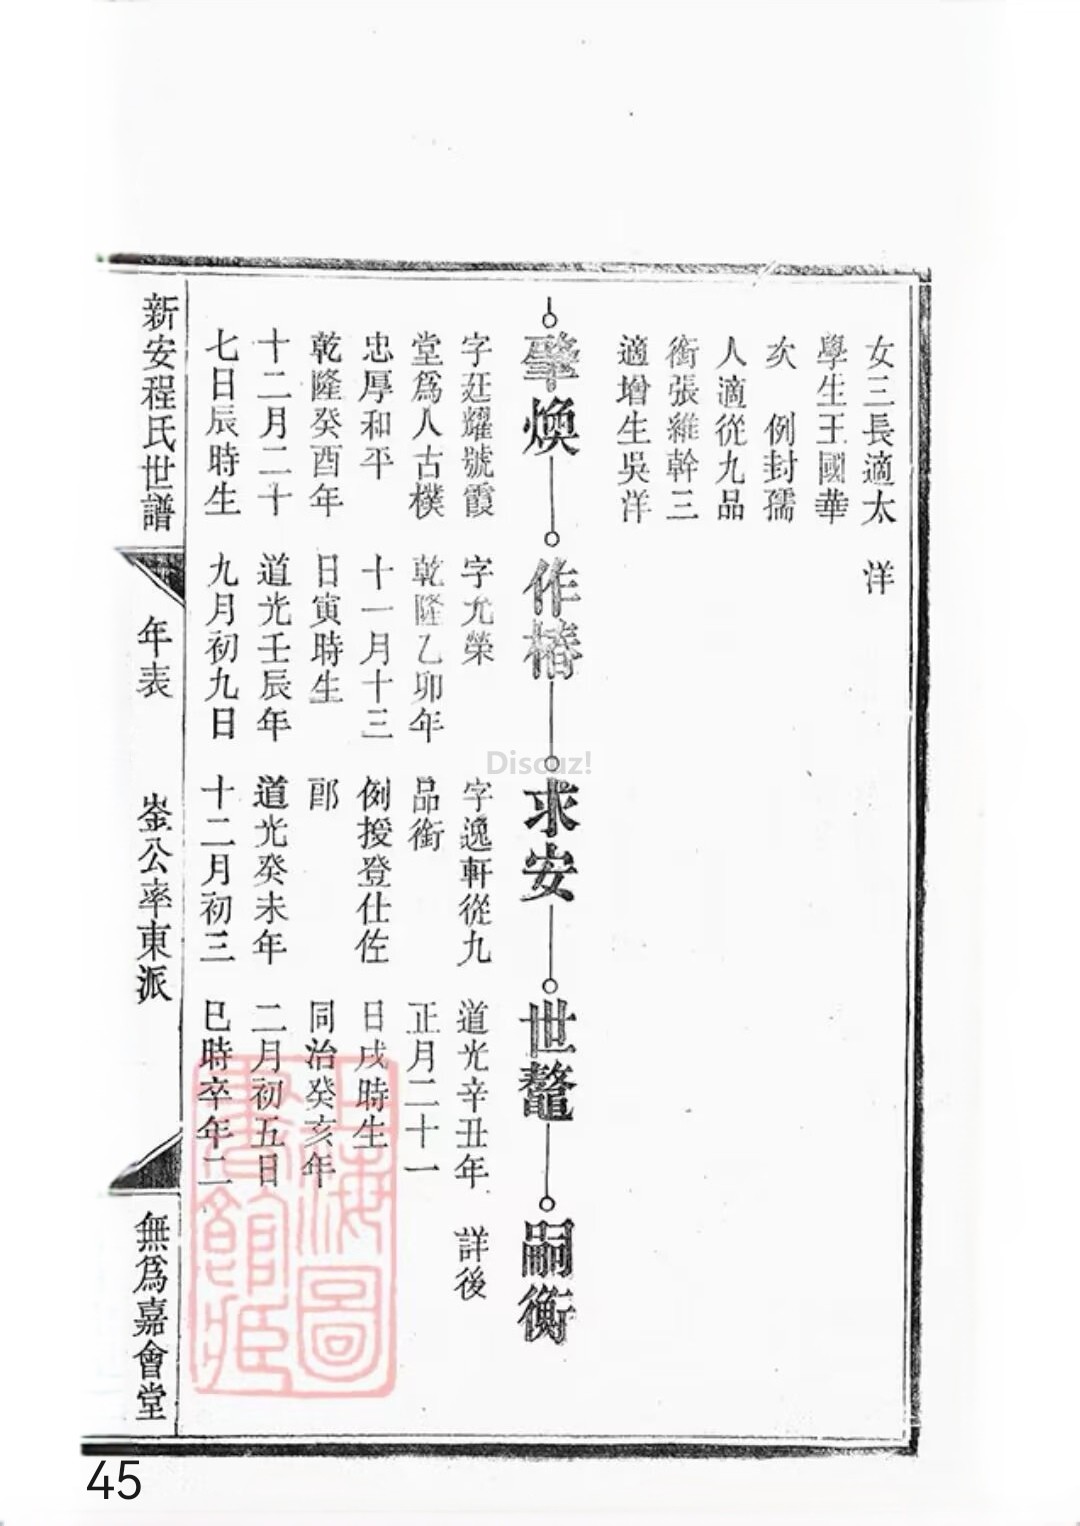 女三長適太
學生王國華
次　例封孺
人適從九品
銜張維幹三
適增生吳洋
洋
肇煥
字廷耀號霞
堂爲人古樸
忠厚和平
乾隆癸酉年
十二月二十
七日辰時生
作椿
字允榮
乾隆乙卯年
十一月十三
日寅時生
道光壬辰年
九月初九日
求安
字逸軒從九
品銜
例授登仕佐
郎
道光癸未年
十二月初三
世鼇
道光辛丑年
正月二十一
日戌時生
同治癸亥年
二月初五日
巳時卒年二
嗣衡
詳後
新安程氏世譜
年表
崟公率東派
無爲嘉會堂
上海圖
書館藏
Discuz!
45